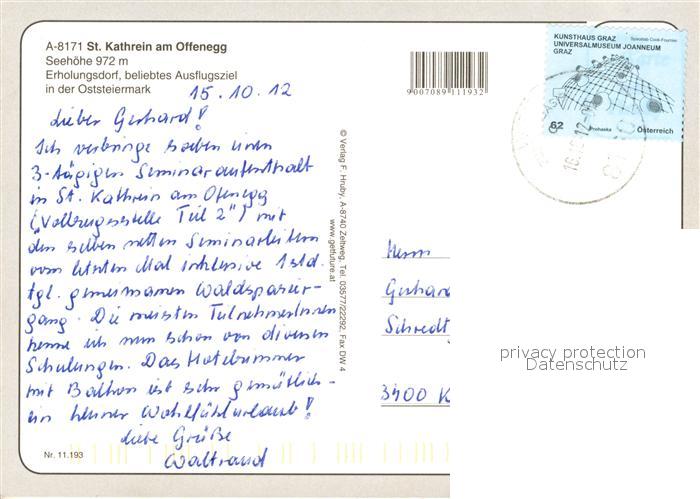 A-8171 St. Kathrein am Offenegg
Seehöhe 972 m
Erholungsdorf, beliebtes Ausflugsziel
in der Oststeiermark
15.10.12
Lieber Gerhard!
Ich verbringe soeben einen
3-tägigen Seminaraufenthalt
in St. Kathrein am Offenegg
("Vollzugsstelle Teil 2") mit
den selben netten Seminarleitern
vom letzten Mal inklusive 1 std.
tgl. gemeinsamen Waldspazier-
gang. Die meisten TeilnehmerInnen
kenne ich nun schon von diversen
Schulungen. Das Hotelzimmer
mit Balkon ist sehr gemütlich -
ein kleiner Wohlfühlurlaub!
Liebe Grüße
Waltraud
Nr. 11.193
9007089 111932
© Verlag F. Hruby, A-8740 Zeltweg, Tel. 03577/22292, Fax DW 4
www.getfuture.at
KUNSTHAUS GRAZ
UNIVERSALMUSEUM JOANNEUM
GRAZ
Spacelab Cook-Fournier
62
Prohaska
Österreich
Herrn
Gerhard
Schredt
3400 K
privacy protection
Datenschutz